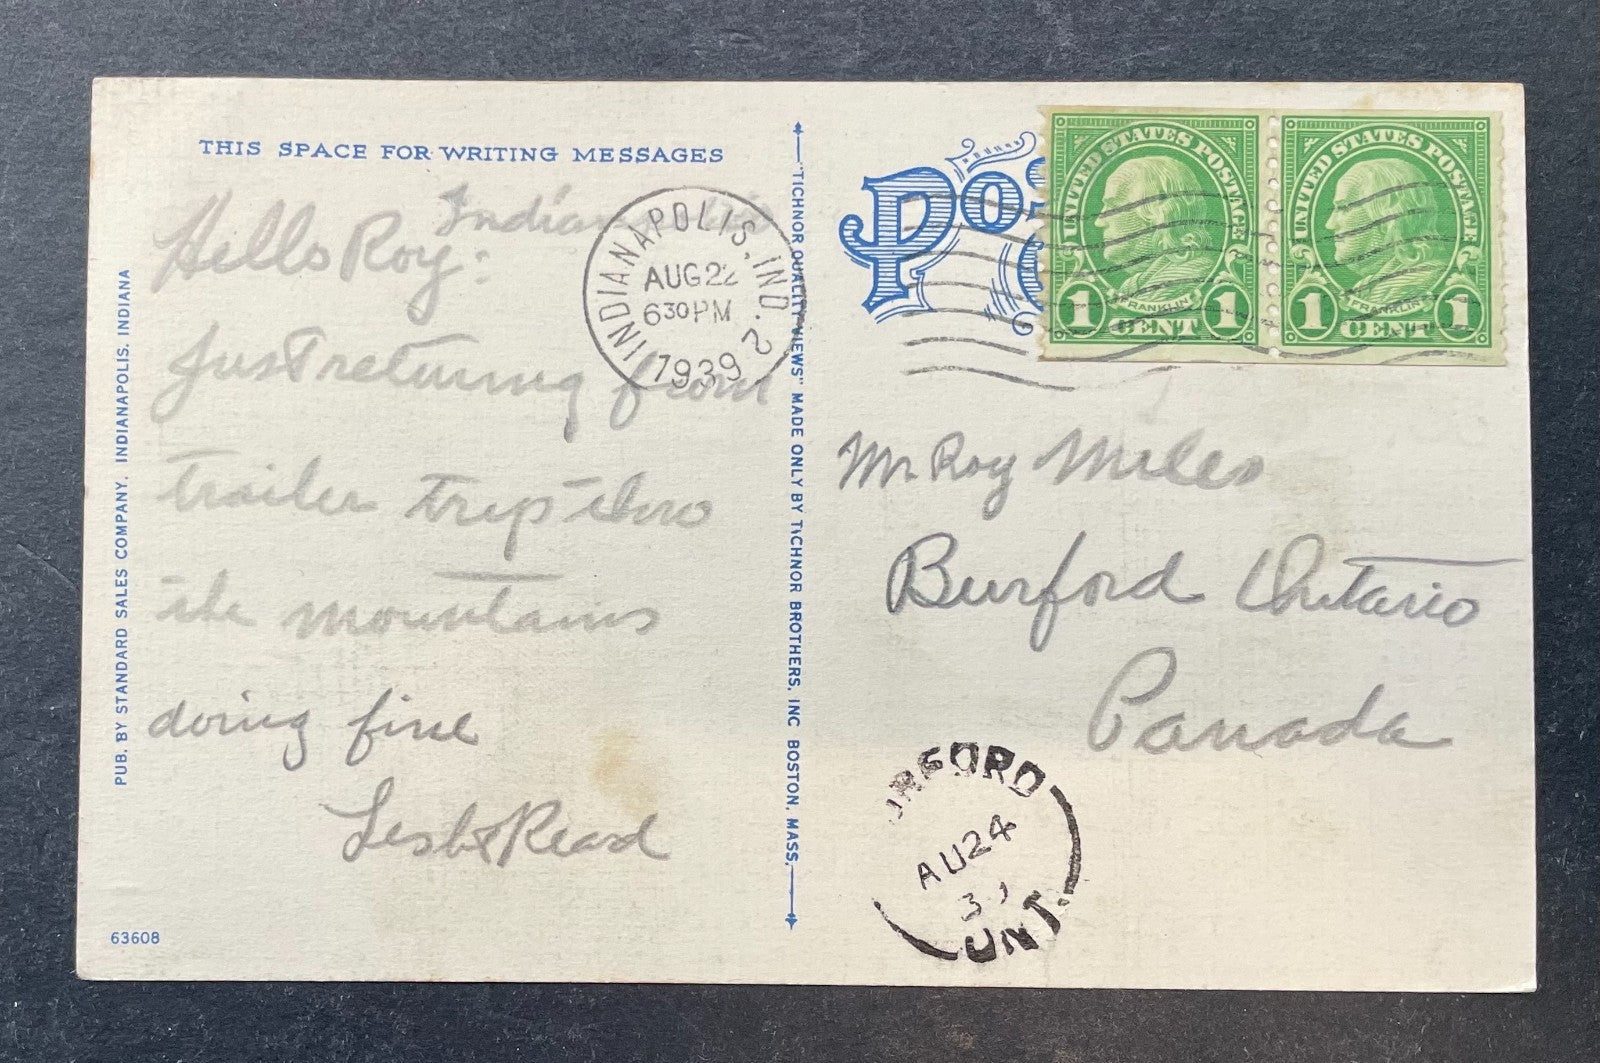 THIS SPACE FOR WRITING MESSAGES
Hello Roy:
Just returning from
trailer trip thro
the mountains
doing fine
Read
PUB. BY STANDARD SALES COMPANY, INDIANAPOLIS, INDIANA
63608
INDIANAPOLIS, IND. 2
AUG 22
630 PM
1939
"TICHNOR QUALITY VIEWS" MADE ONLY BY TICHNOR BROTHERS, INC BOSTON, MASS.
UNITED STATES POSTAGE
FRANKLIN
1 CENT 1
UNITED STATES POSTAGE
FRANKLIN
1 CENT 1
Mr Roy Miles
Burford Ontario
Canada
AU 24
ONT.